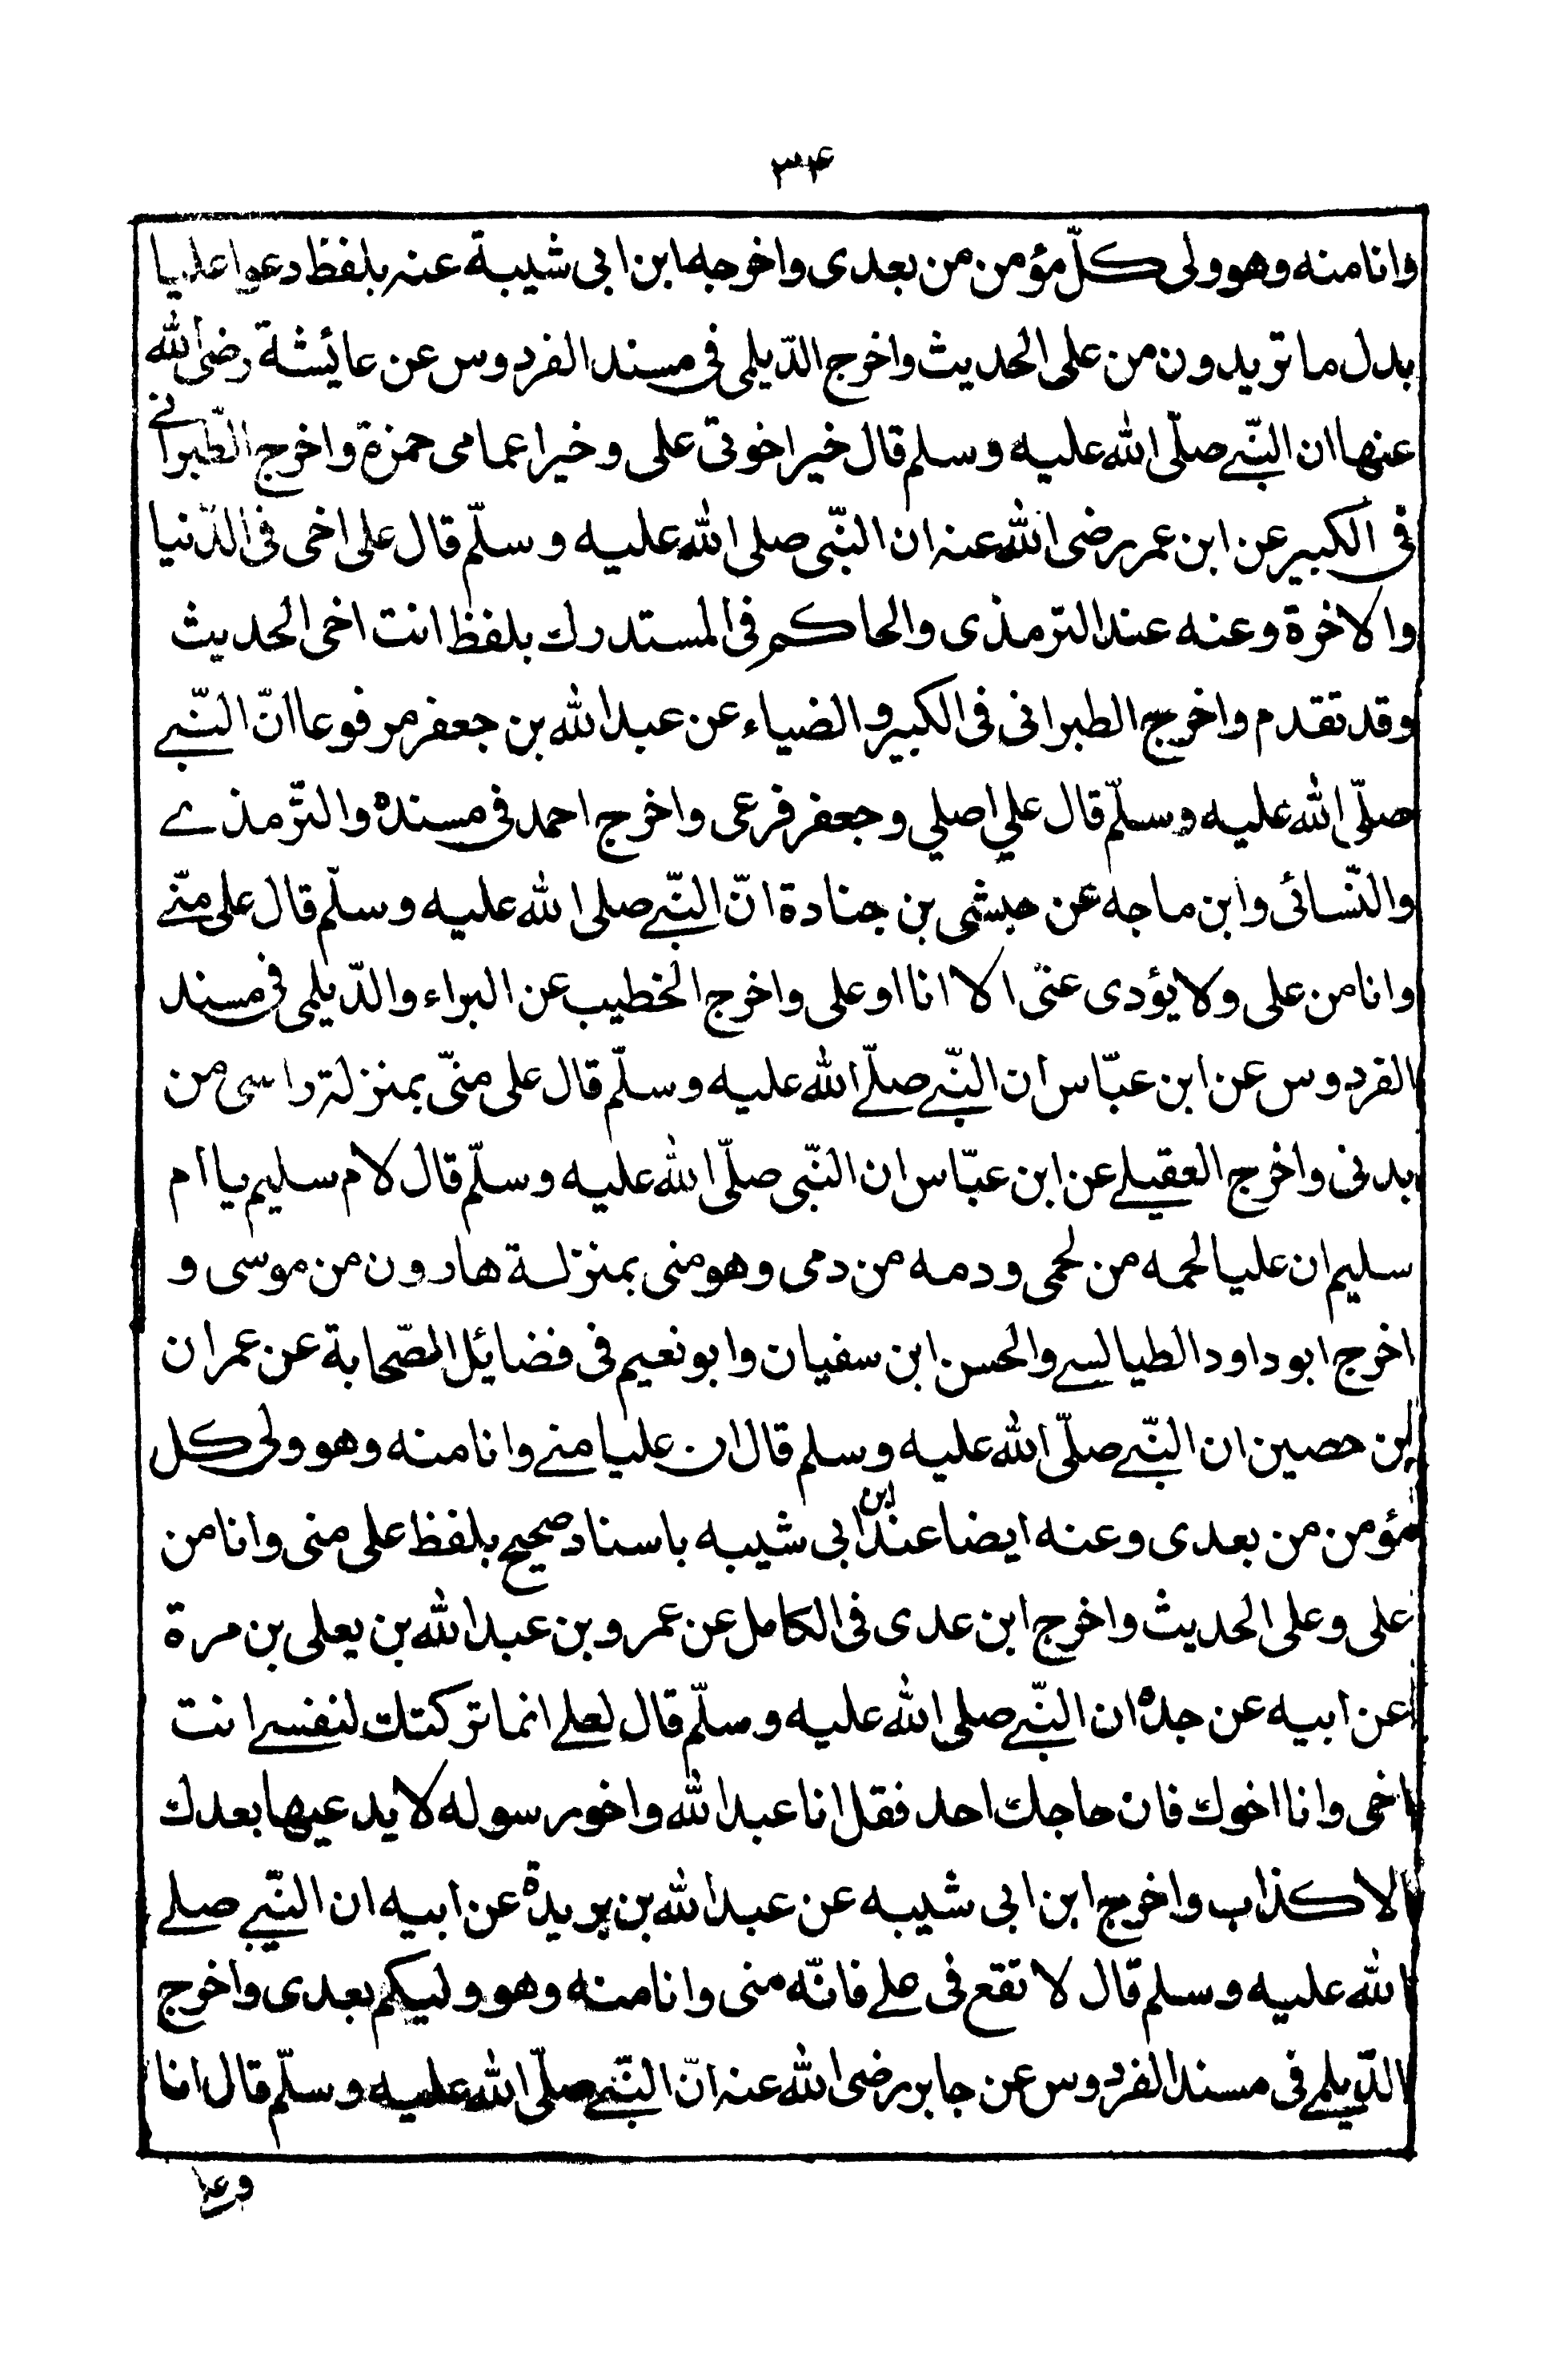 ۳۴
وانا منه وهو ولى كلّ مؤمن من بعدى واخرجه ابن ابى شيبة عنه بلفظ دعوا عليا
بدل ما تريدون من على الحديث واخرج الدّيلمى فى مسند الفردوس عن عائيشة رضى الله
عنها ان النّبى صلّى الله عليه وسلم قال خير اخوتى على وخير اعمامى حمزة واخرج الطّبرانى
فى الكبير عن ابن عمر رضى الله عنه ان النّبى صلى الله عليه وسلّم قال على اخى فى الدّنيا
والاخرة وعنه عند الترمذى والحاكم فى المستدرك بلفظ انت اخى الحديث
وقد تقدم واخرج الطبرانى فى الكبير والضياء عن عبد الله بن جعفر مرفوعا انّ النّبى
صلّى الله عليه وسلّم قال علي اصلي وجعفر فرعى واخرج احمد فى مسنده والتّرمذى
والنّسائى وابن ماجه عن حبشى بن جنادة انّ النّبى صلى الله عليه وسلّم قال على منّى
وانا من على ولا يؤدى عنّى الا انا او على واخرج الخطيب عن البراء والدّيلمى فى مسند
الفردوس عن ابن عبّاس ان النّبى صلّى الله عليه وسلّم قال على منّى بمنزلة راسى من
بدنى واخرج العقيلى عن ابن عبّاس ان النّبى صلّى الله عليه وسلّم قال لام سليم يا ام
سليم ان عليا لحمه من لحمى ودمه من دمى وهو منى بمنزلة هارون من موسى و
اخرج ابو داود الطيالسى والحسن ابن سفيان وابو نعيم فى فضايل الصّحابة عن عمران
ابن حصين ان النّبى صلّى الله عليه وسلم قال ان عليا منى وانا منه وهو ولى كل
مؤمن من بعدى وعنه ايضا عند ابن ابى شيبه باسناد صحيح بلفظ على منى وانا من
على وعلى الحديث واخرج ابن عدى فى الكامل عن عمرو بن عبد الله بن يعلى بن مرة
عن ابيه عن جده ان النّبى صلى الله عليه وسلّم قال لعلى انما تركتك لنفسى انت
اخى وانا اخوك فان حاجك احد فقل انا عبد الله واخو رسوله لا يدعيها بعدك
الا كذاب واخرج ابن ابى شيبه عن عبد الله بن بريدة عن ابيه ان النّبى صلى
الله عليه وسلم قال لا تقع فى على فانّه منى وانا منه وهو وليكم بعدى واخرج
الدّيلمى فى مسند الفردوس عن جابر رضى الله عنه انّ النّبى صلّى الله عليه وسلّم قال انا
وعلى